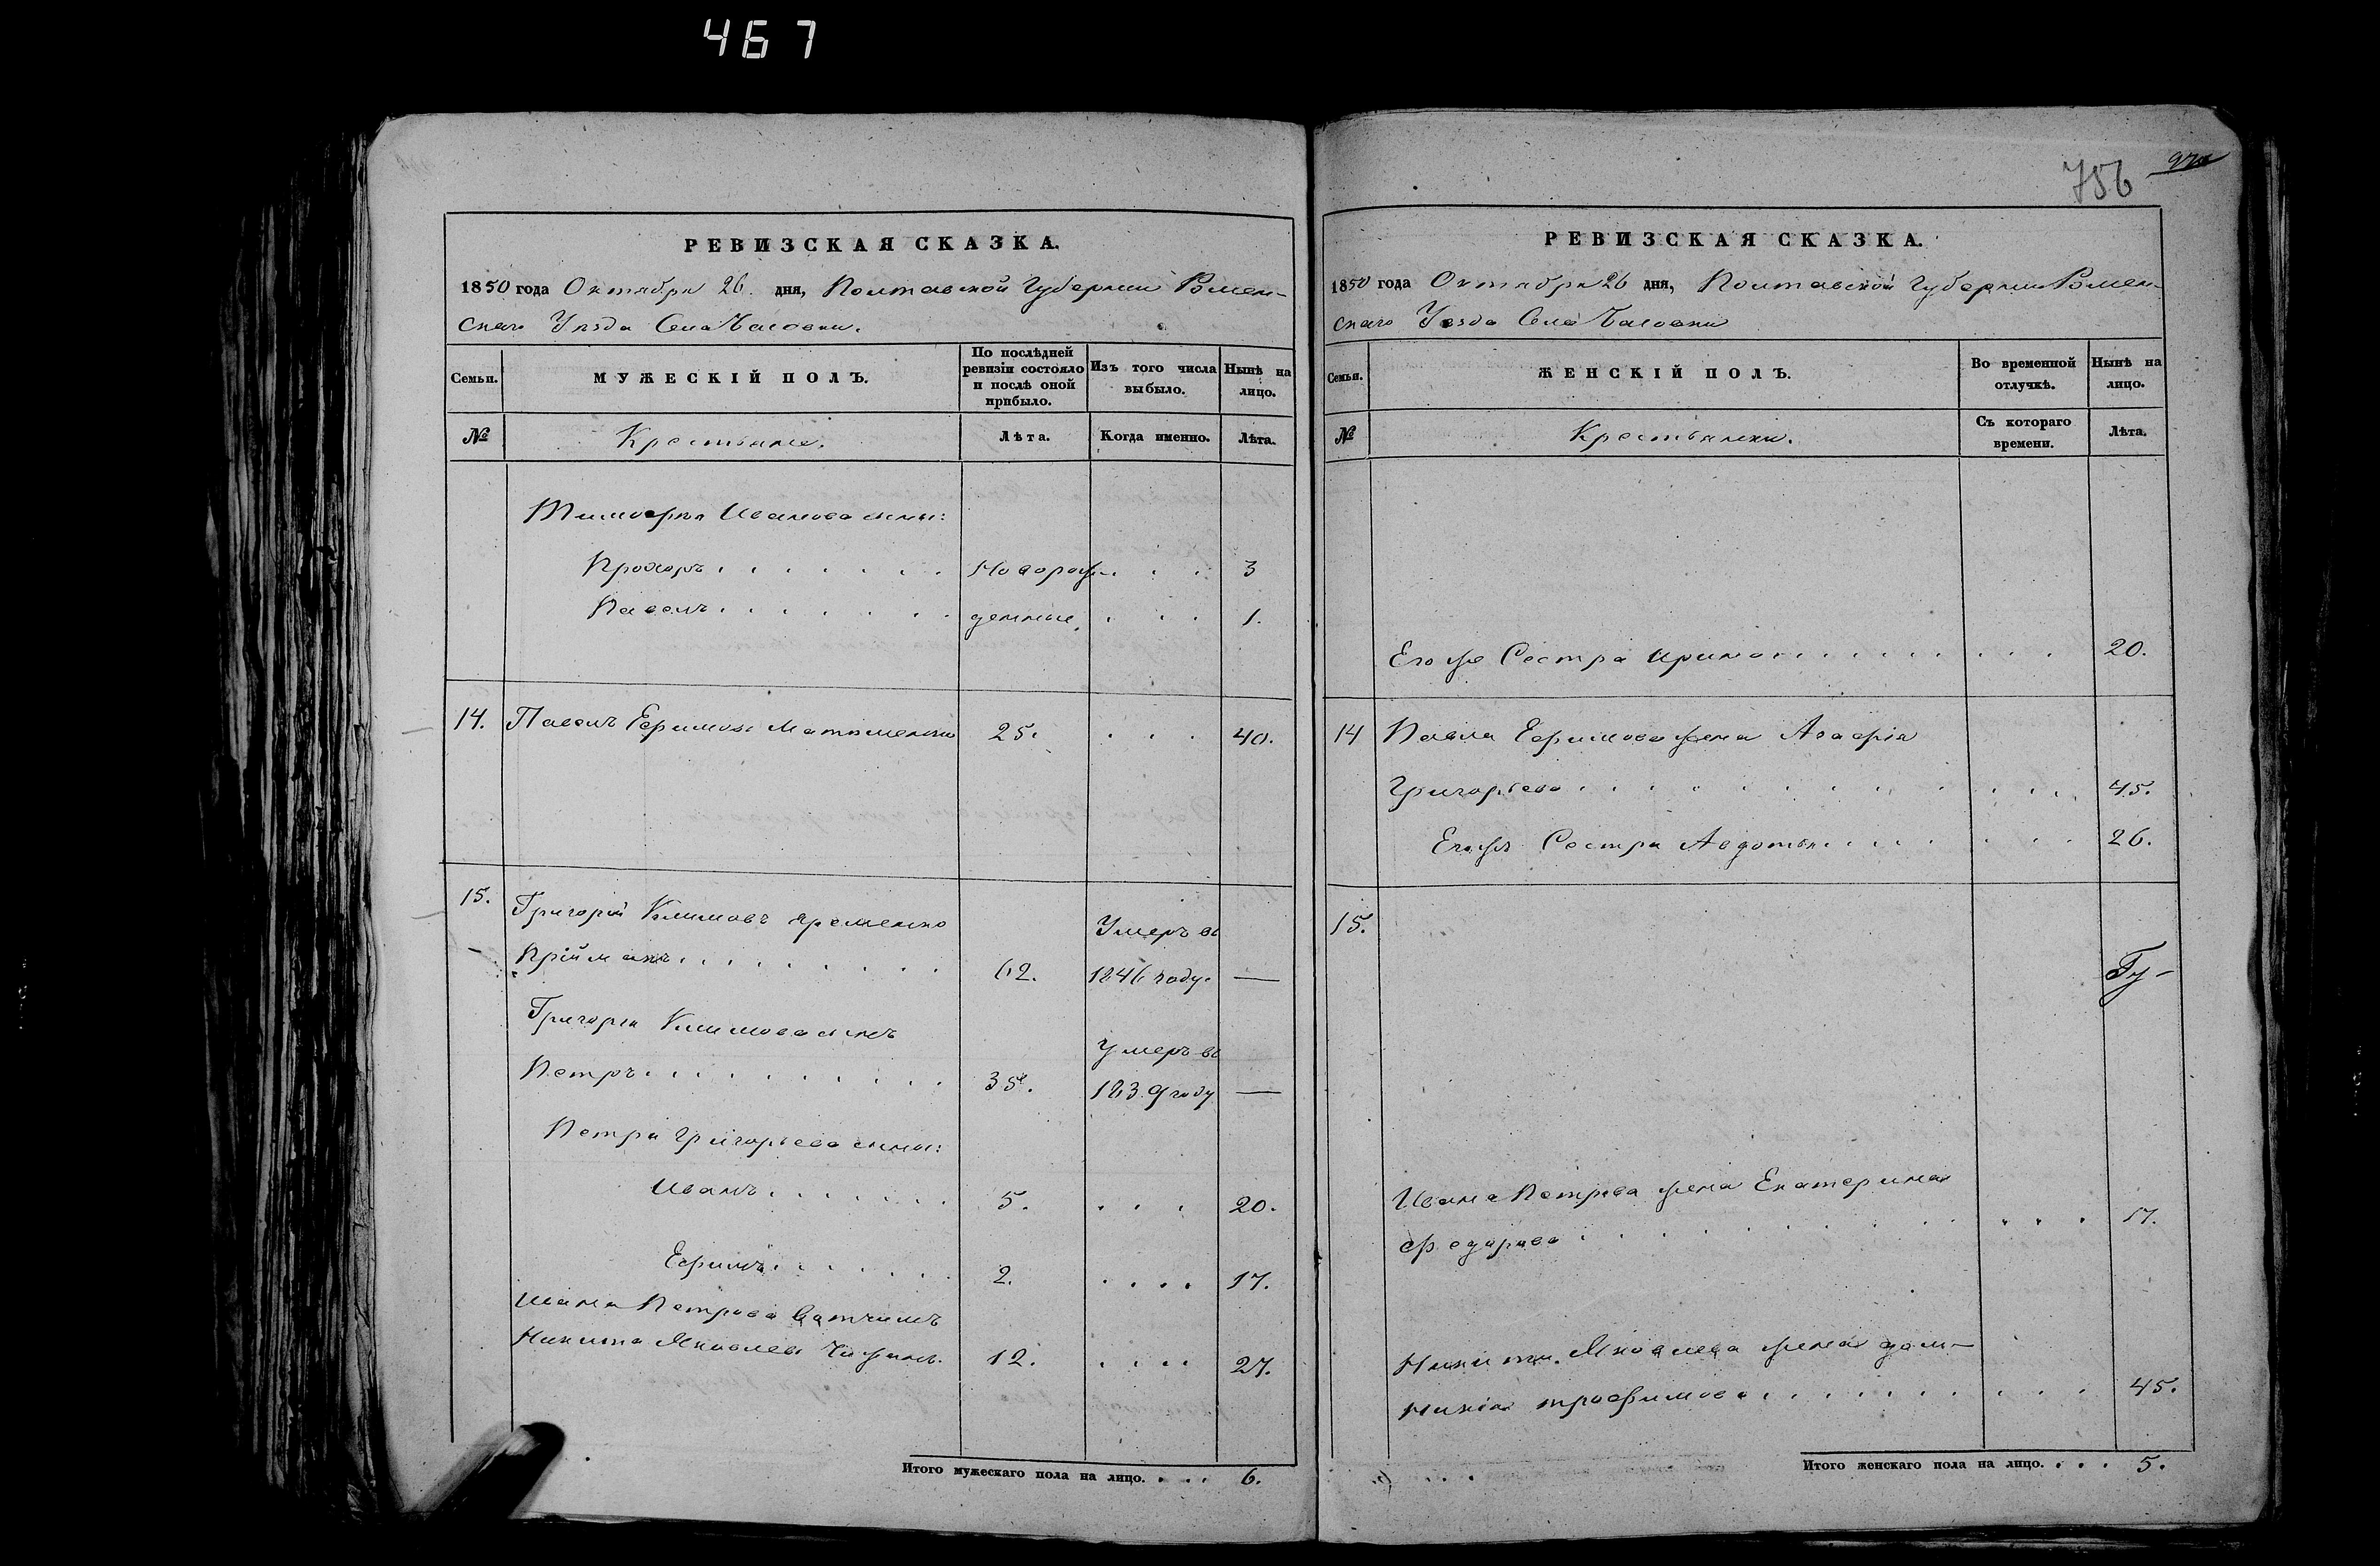 467
756
РЕВИЗСКАЯ СКАЗКА.
1850 года Октября 26. дня, Полтавской Губернии Ромен-
скаго Уѣзда Села
Семьи.
МУЖЕСКІЙ ПОЛЪ.
По послѣдней ревизіи состояло и послѣ оной прибыло.
Изъ того числа выбыло.
Нынѣ на лицо.
№
Крестьяне.
Лѣта.
Когда именно.
Лѣта.
Тимофея Иванова сыны:
Прохоръ . . . . . . . Новорож- . . . 3
Павелъ . . . . . . . денные. . . . 1.
14. Павелъ Ефимовъ 25. . . . 40.
15. Григорій Климовъ Яременко Умеръ въ
Пріймакъ . . . . . . . . . 62. 1846 году. —
Григорія Климова сынъ Умеръ въ
Петръ . . . . . . . . . . 35. 1839 году —
Петра Григорьева сыны:
Иванъ . . . . . . 5. . . . 20.
Ефимъ . . . . . . 2. . . . . 17.
Ивана ПетроваВатчимъ
Никита Яковлевъ 12. . . . . 27.
Итого мужескаго пола на лицо. . . . . 6.
РЕВИЗСКАЯ СКАЗКА.
1850 года Октября 26 дня, Полтавской Губернии Ромен-
скаго Уезда Села
Семьи.
ЖЕНСКІЙ ПОЛЪ.
Во временной отлучкѣ.
Нынѣ на лицо.
№
Крестьянки.
Съ котораго времени.
Лѣта.
Его же Сестра Ирина . . . . . . . . . 20.
14 Павла Ефимова жена Агафія
Григорьева . . . . . . . . . . . . 45.
Его же Сестра Авдотья . . . . . . . . 26.
15.
Гу-
Ивана Петрова жена Екатерина
Федорова . . . . . . . . . . . 17.
Никиты Яковлева жена Дом-
никія Трофимова . . . . . . . . . . 45.
Итого женскаго пола на лицо. . . . 5.